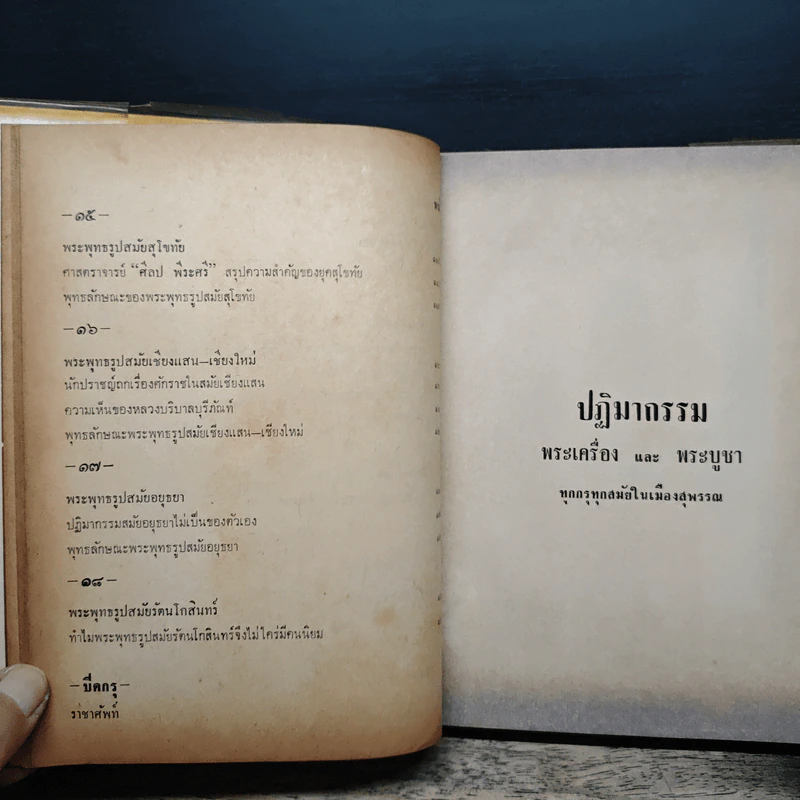 –๑๕–
พระพุทธรูปสมัยสุโขทัย
ศาสตราจารย์ “ศิลป พีระศรี” สรุปความสำคัญของยุคสุโขทัย
พุทธลักษณะของพระพุทธรูปสมัยสุโขทัย
–๑๖–
พระพุทธรูปสมัยเชียงแสน–เชียงใหม่
นักปราชญ์ถกเรื่องศักราชในสมัยเชียงแสน
ความเห็นของหลวงบริบาลบุรีภัณฑ์
พุทธลักษณะพระพุทธรูปสมัยเชียงแสน–เชียงใหม่
–๑๗–
พระพุทธรูปสมัยอยุธยา
ปฏิมากรรมสมัยอยุธยาไม่เป็นของตัวเอง
พุทธลักษณะพระพุทธรูปสมัยอยุธยา
–๑๘–
พระพุทธรูปสมัยรัตนโกสินทร์
ทำไมพระพุทธรูปสมัยรัตนโกสินทร์จึงไม่ใคร่มีคนนิยม
–ปิดกรุ–
ราชาศัพท์
ปฏิมากรรม
พระเครื่อง และ พระบูชา
ทุกกรุทุกสมัยในเมืองสุพรรณ